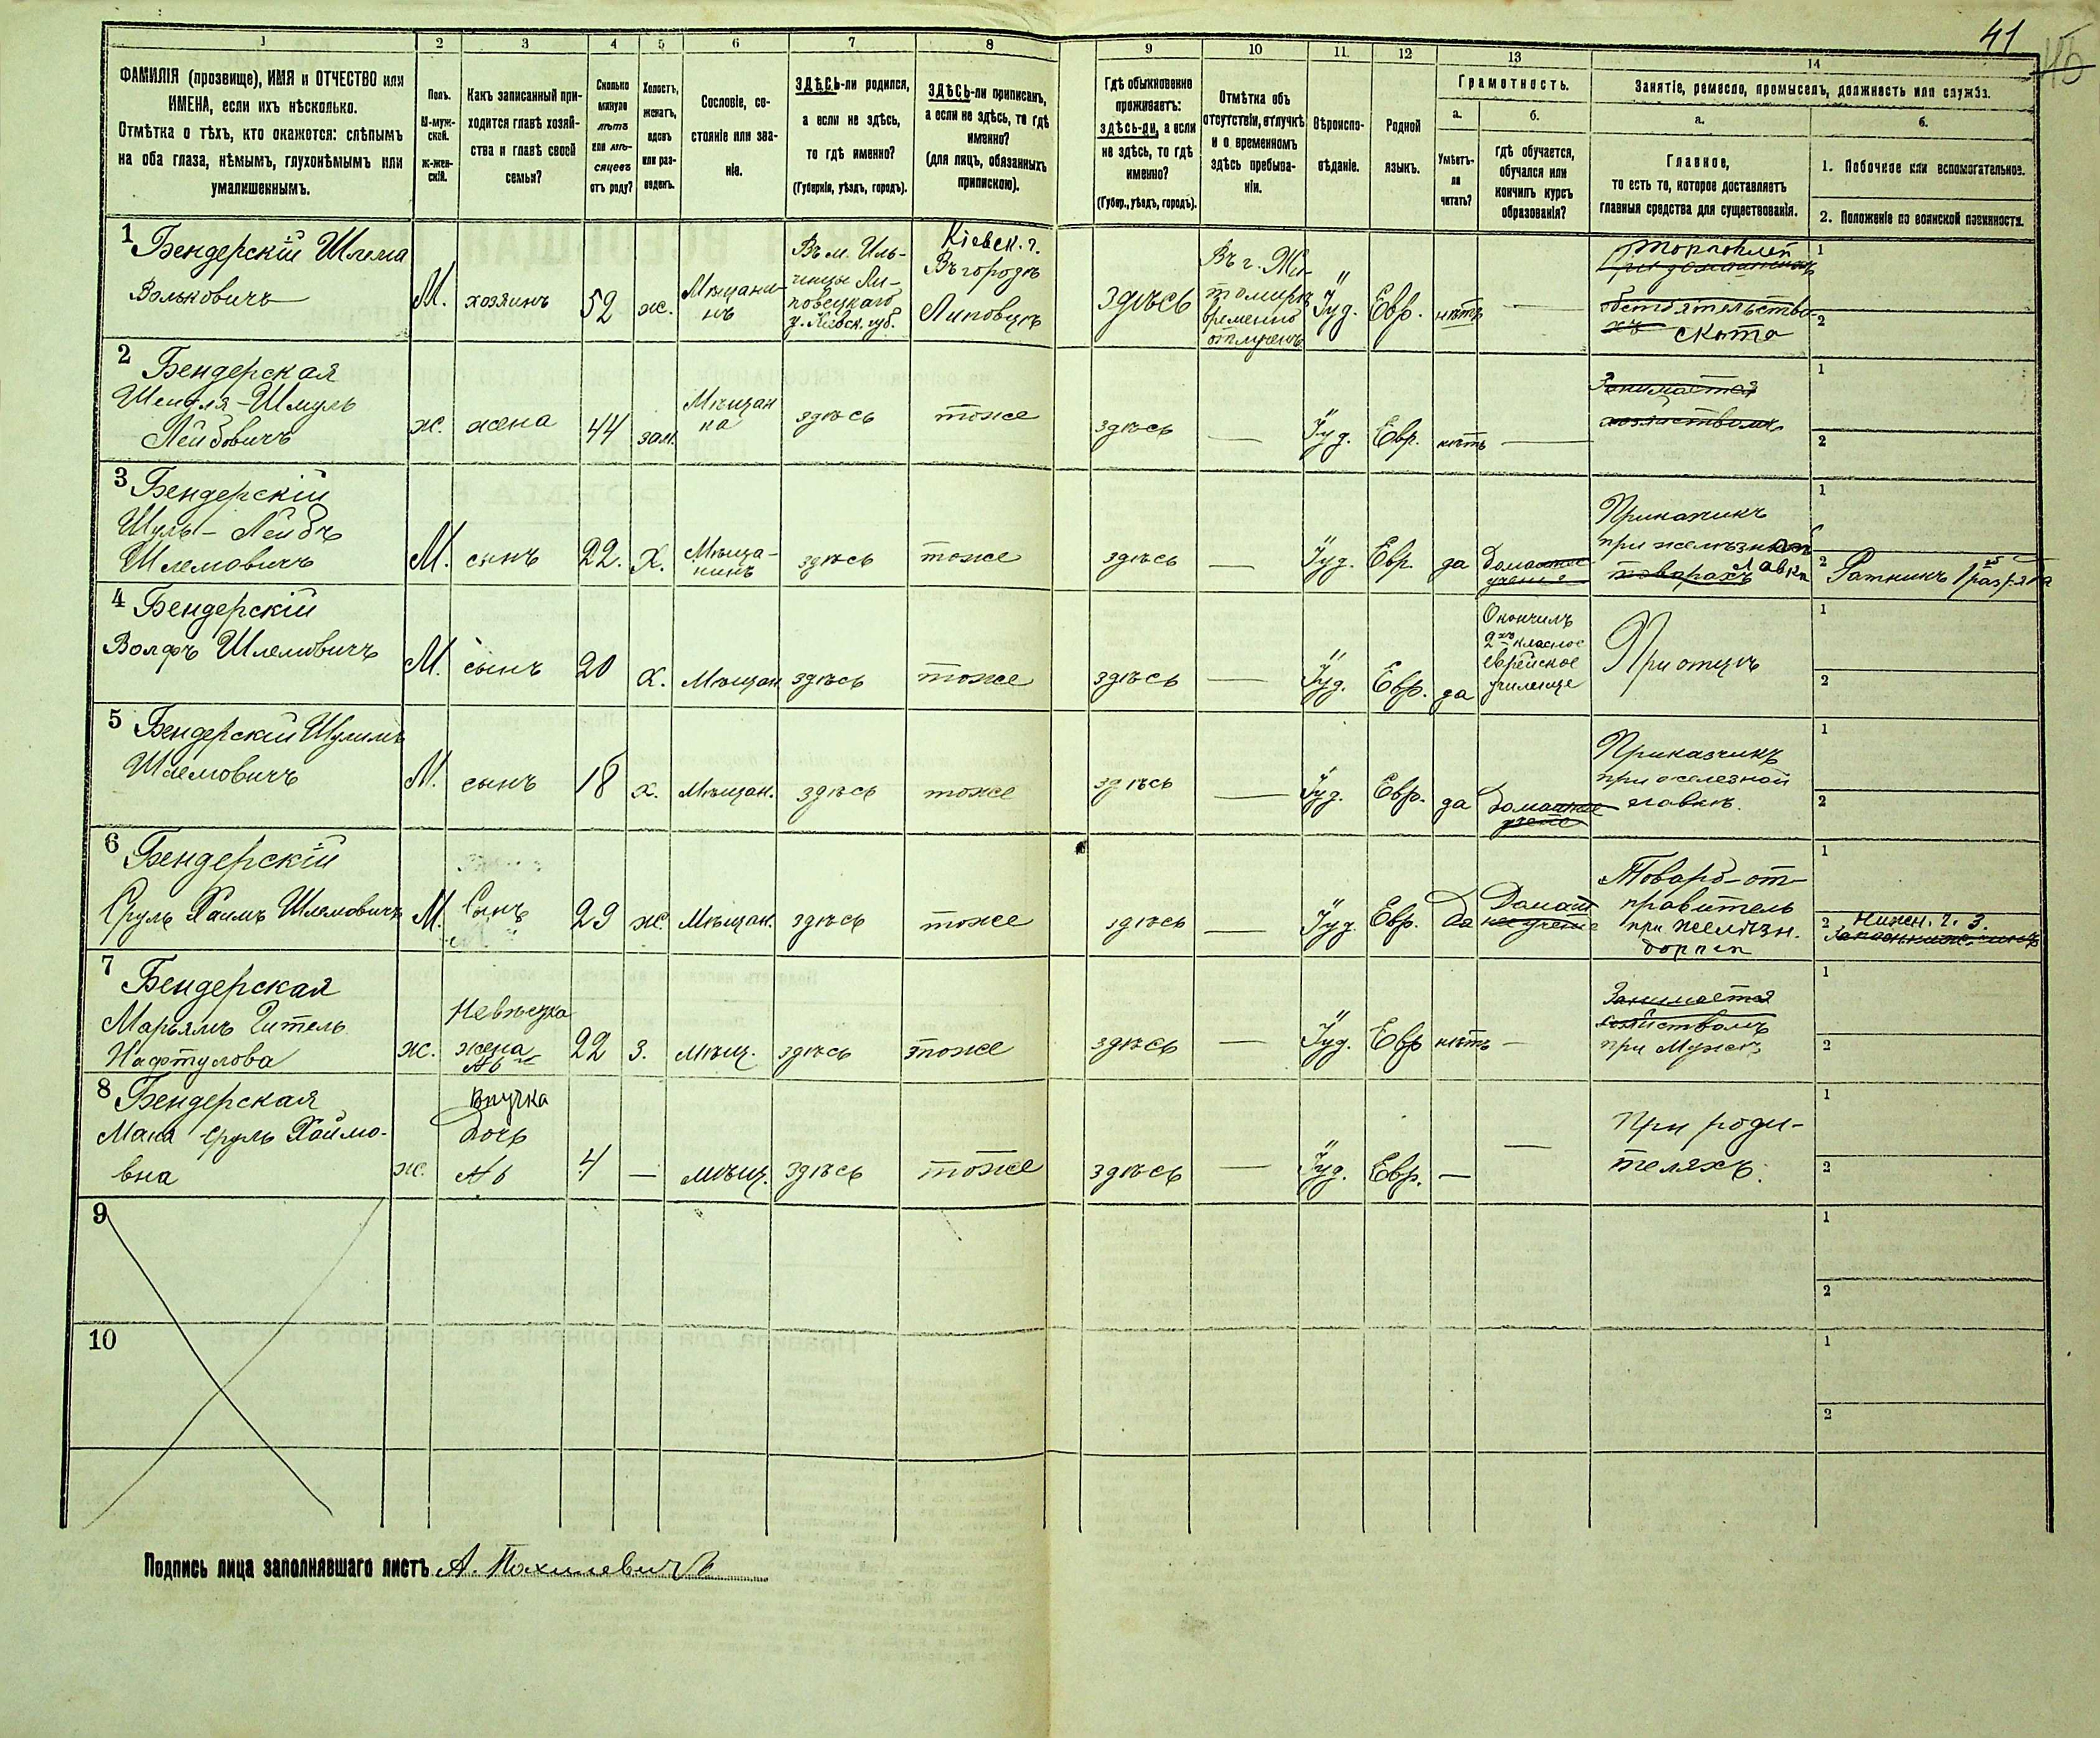 41
1 2 3 4 5 6 7 8 9 10 11. 12 13 14
ФАМИЛІЯ (прозвище), ИМЯ и ОТЧЕСТВО или
ИМЕНА, если ихъ нѣсколько.
Отмѣтка о тѣхъ, кто окажется: слѣпымъ
на оба глаза, нѣмымъ, глухонѣмымъ или
умалишеннымъ.
Полъ.
М-муж-
ской.
Ж-жен-
скій.
Какъ записанный при-
ходится главѣ хозяй-
ства и главѣ своей
семьи?
Сколько
минуло
лѣтъ
или мѣ-
сяцевъ
отъ роду?
Холостъ,
женатъ,
вдовъ
или раз-
веденъ.
Сословіе, со-
стояніе или зва-
ніе.
ЗДѢСЬ-ли родился,
а если не здѣсь,
то гдѣ именно?
(Губернія, уѣздъ, городъ).
ЗДѢСЬ-ли приписанъ,
а если не здѣсь, то гдѣ
именно?
(для лицъ, обязанныхъ
припискою).
Гдѣ обыкновенно
проживаетъ:
здѣсь-ли, а если
не здѣсь, то гдѣ
именно?
(Губер., уѣздъ, городъ).
Отмѣтка объ
отсутствіи, отлучкѣ
и о временномъ
здѣсь пребыва-
ніи.
Вѣроиспо-
вѣданіе.
Родной
языкъ.
Грамотность.
а.
Умѣетъ-
ли
читать?
б.
гдѣ обучается,
обучался или
кончилъ курсъ
образованія?
Занятіе, ремесло, промыселъ, должность или служба.
а.
Главное,
то есть то, которое доставляетъ
главныя средства для существованія.
б.
1. Побочное или вспомогательное.
2. Положеніе по воинской повинности.
1 Бендерскій Шлема
Вольковичъ
М.
хозяинъ
52
ж.
Мѣщани-
нъ
Въ м. Иль-
инцы Ли-
повецкаго
у. Кіевск. губ.
Кіевск. г.
Въ городѣ
Липовцѣ
Здѣсь
Въ г. Жи-
томирѣ
временно
отлученъ
Іуд.
Евр.
нѣтъ
—
обстоятельства
скота
1
2
2 Бендерская
Лейбовичъ
ж.
жена
44
зам.
Мѣщан
ка
здѣсь
тоже
здѣсь
—
Іуд.
Евр.
нѣтъ
—
Занимается
хозяйствомъ
1
2
3 Бендерскій
Шуль-Лейбъ
Шлемовичъ
М.
сынъ
22.
Х.
Мѣща-
нинъ
здѣсь
тоже
здѣсь
—
Іуд.
Евр.
да
Домашнее
ученье
Прикащикъ
при желѣзной
товарахъ лавкѣ
1
2 Ратникъ 1 разряда
4 Бендерскій
Волфъ Шлемовичъ
М.
сынъ
20
х.
Мѣщан
здѣсь
тоже
здѣсь
—
Іуд.
Евр.
да
Окончилъ
2хъ класное
еврейское
училище
При отцѣ
1
2
5 Бендерскій Шулимъ
Шлемовичъ
М.
сынъ
18
х.
Мѣщан.
здѣсь
тоже
здѣсь
—
Іуд.
Евр.
да
Домашнее
Приказчикъ
при железной
лавкѣ.
1
2
6 Бендерскій
Сруль Хаимъ Шлемовичъ
М.
Сынъ
29
ж.
Мѣщан.
здѣсь
тоже
здѣсь
—
Іуд.
Евр.
да
Домаш
нее учение
Товаро-от-
правитель
при желѣзн.
дорогѣ
1
2 Нижн. ч. з.
7 Бендерская
Марьямъ Гитель
Нафтулова
ж.
Невѣстка
жена
№6
22
з.
мѣщ.
здѣсь
тоже
здѣсь
—
Іуд.
Евр
нѣтъ
—
Занимается
хозяйствомъ
при Мужѣ
1
2
8 Бендерская
Маня Сруль Хаимо-
вна
ж.
Внучка
Дочь
№6
4
—
мѣщ.
здѣсь
тоже
здѣсь
—
Іуд.
Евр.
—
—
При роди-
теляхъ.
1
2
9
1
2
10
1
2
Подпись лица заполнявшаго листъ А. Похилевичъ